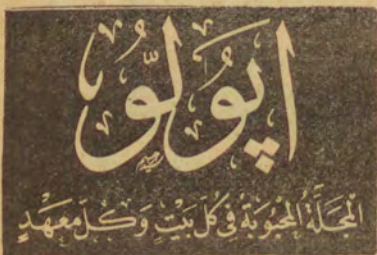 اپولّو
المجلّة المحبوبة في كلّ بيتٍ وكلّ معهدٍ